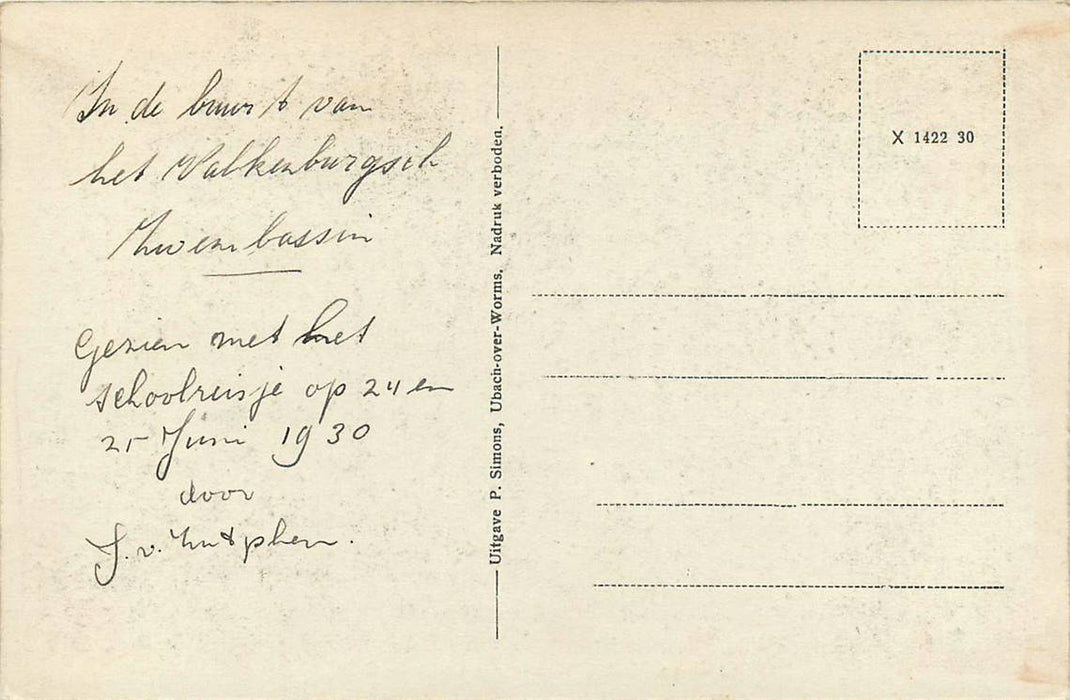 In de buurt van
het Valkenburgsch
Zwembassin
Gezien met het
schoolreisje op 24 en
25 Juni 1930
door
J. v. Zutphen.
Uitgave P. Simons, Ubach-over-Worms. Nadruk verboden.
X 1422 30